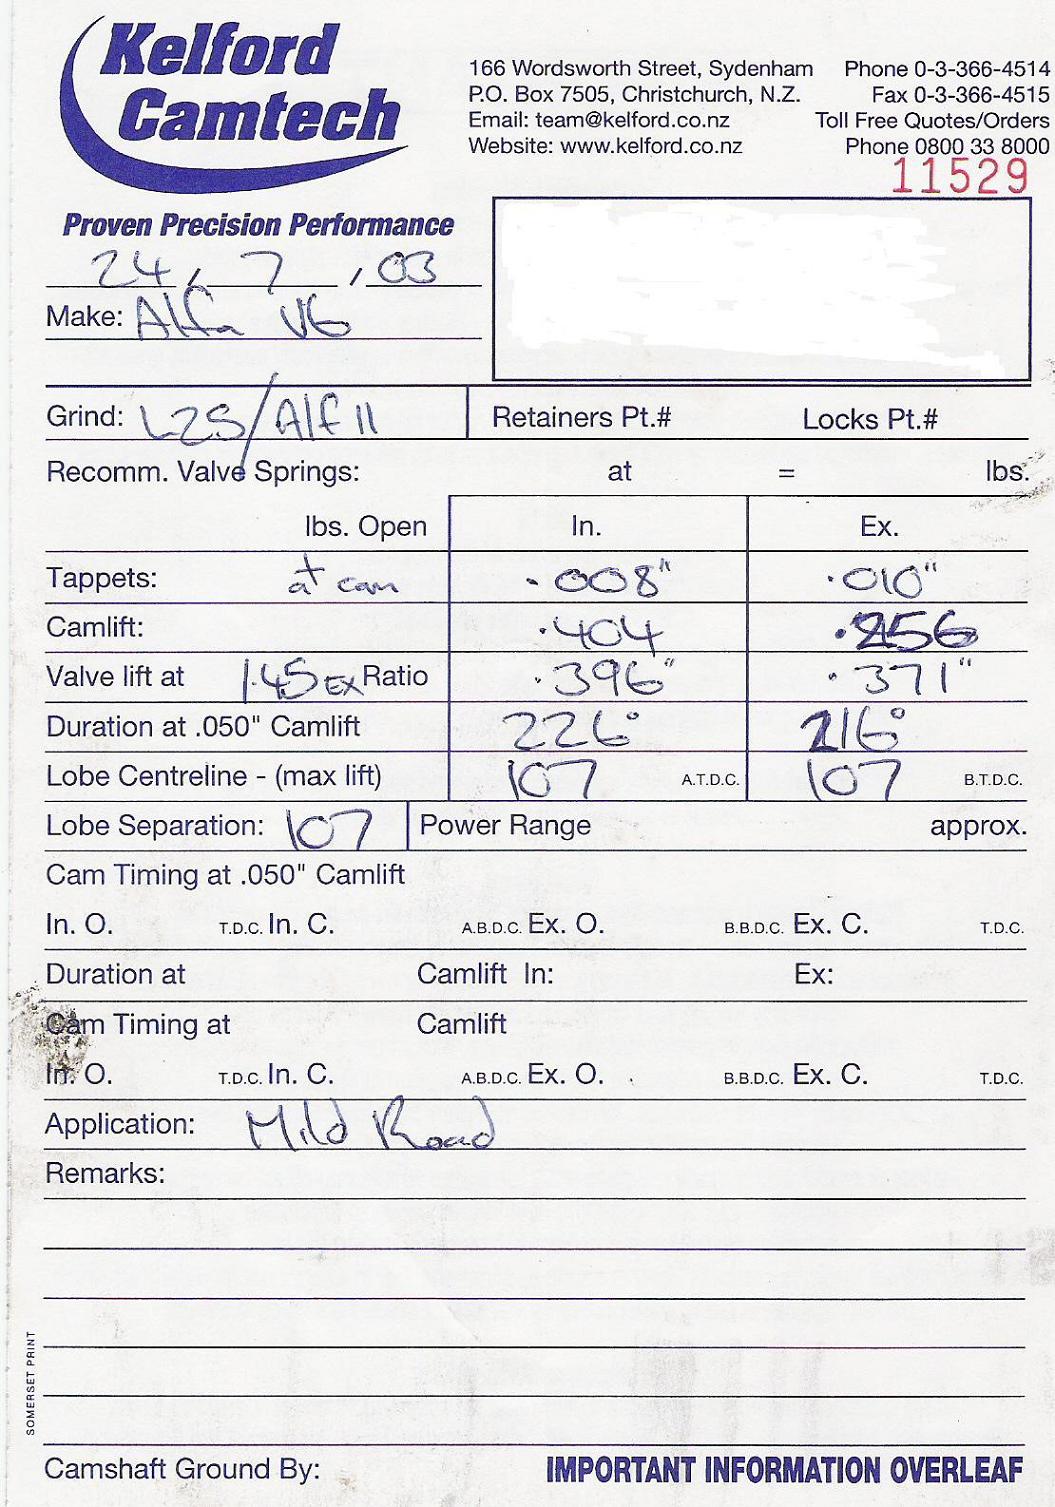 Kelford
Camtech
Proven Precision Performance
166 Wordsworth Street, Sydenham Phone 0-3-366-4514
P.O. Box 7505, Christchurch, N.Z. Fax 0-3-366-4515
Email: team@kelford.co.nz Toll Free Quotes/Orders
Website: www.kelford.co.nz Phone 0800 33 8000
11529
24, 7, 03
Make: Alfa V6
Grind: L25/Alf 11 Retainers Pt.# Locks Pt.#
Recomm. Valve Springs: at = lbs.
lbs. Open In. Ex.
Tappets: at cam .008" .010"
Camlift: .404 .256
Valve lift at 1.45 EX Ratio .396" .371"
Duration at .050" Camlift 226° 216°
Lobe Centreline - (max lift) 107 A.T.D.C. 107 B.T.D.C.
Lobe Separation: 107 Power Range approx.
Cam Timing at .050" Camlift
In. O. T.D.C. In. C. A.B.D.C. Ex. O. B.B.D.C. Ex. C. T.D.C.
Duration at Camlift In: Ex:
Cam Timing at Camlift
In. O. T.D.C. In. C. A.B.D.C. Ex. O. B.B.D.C. Ex. C. T.D.C.
Application: Mild Road
Remarks:
SOMERSET PRINT
Camshaft Ground By: IMPORTANT INFORMATION OVERLEAF